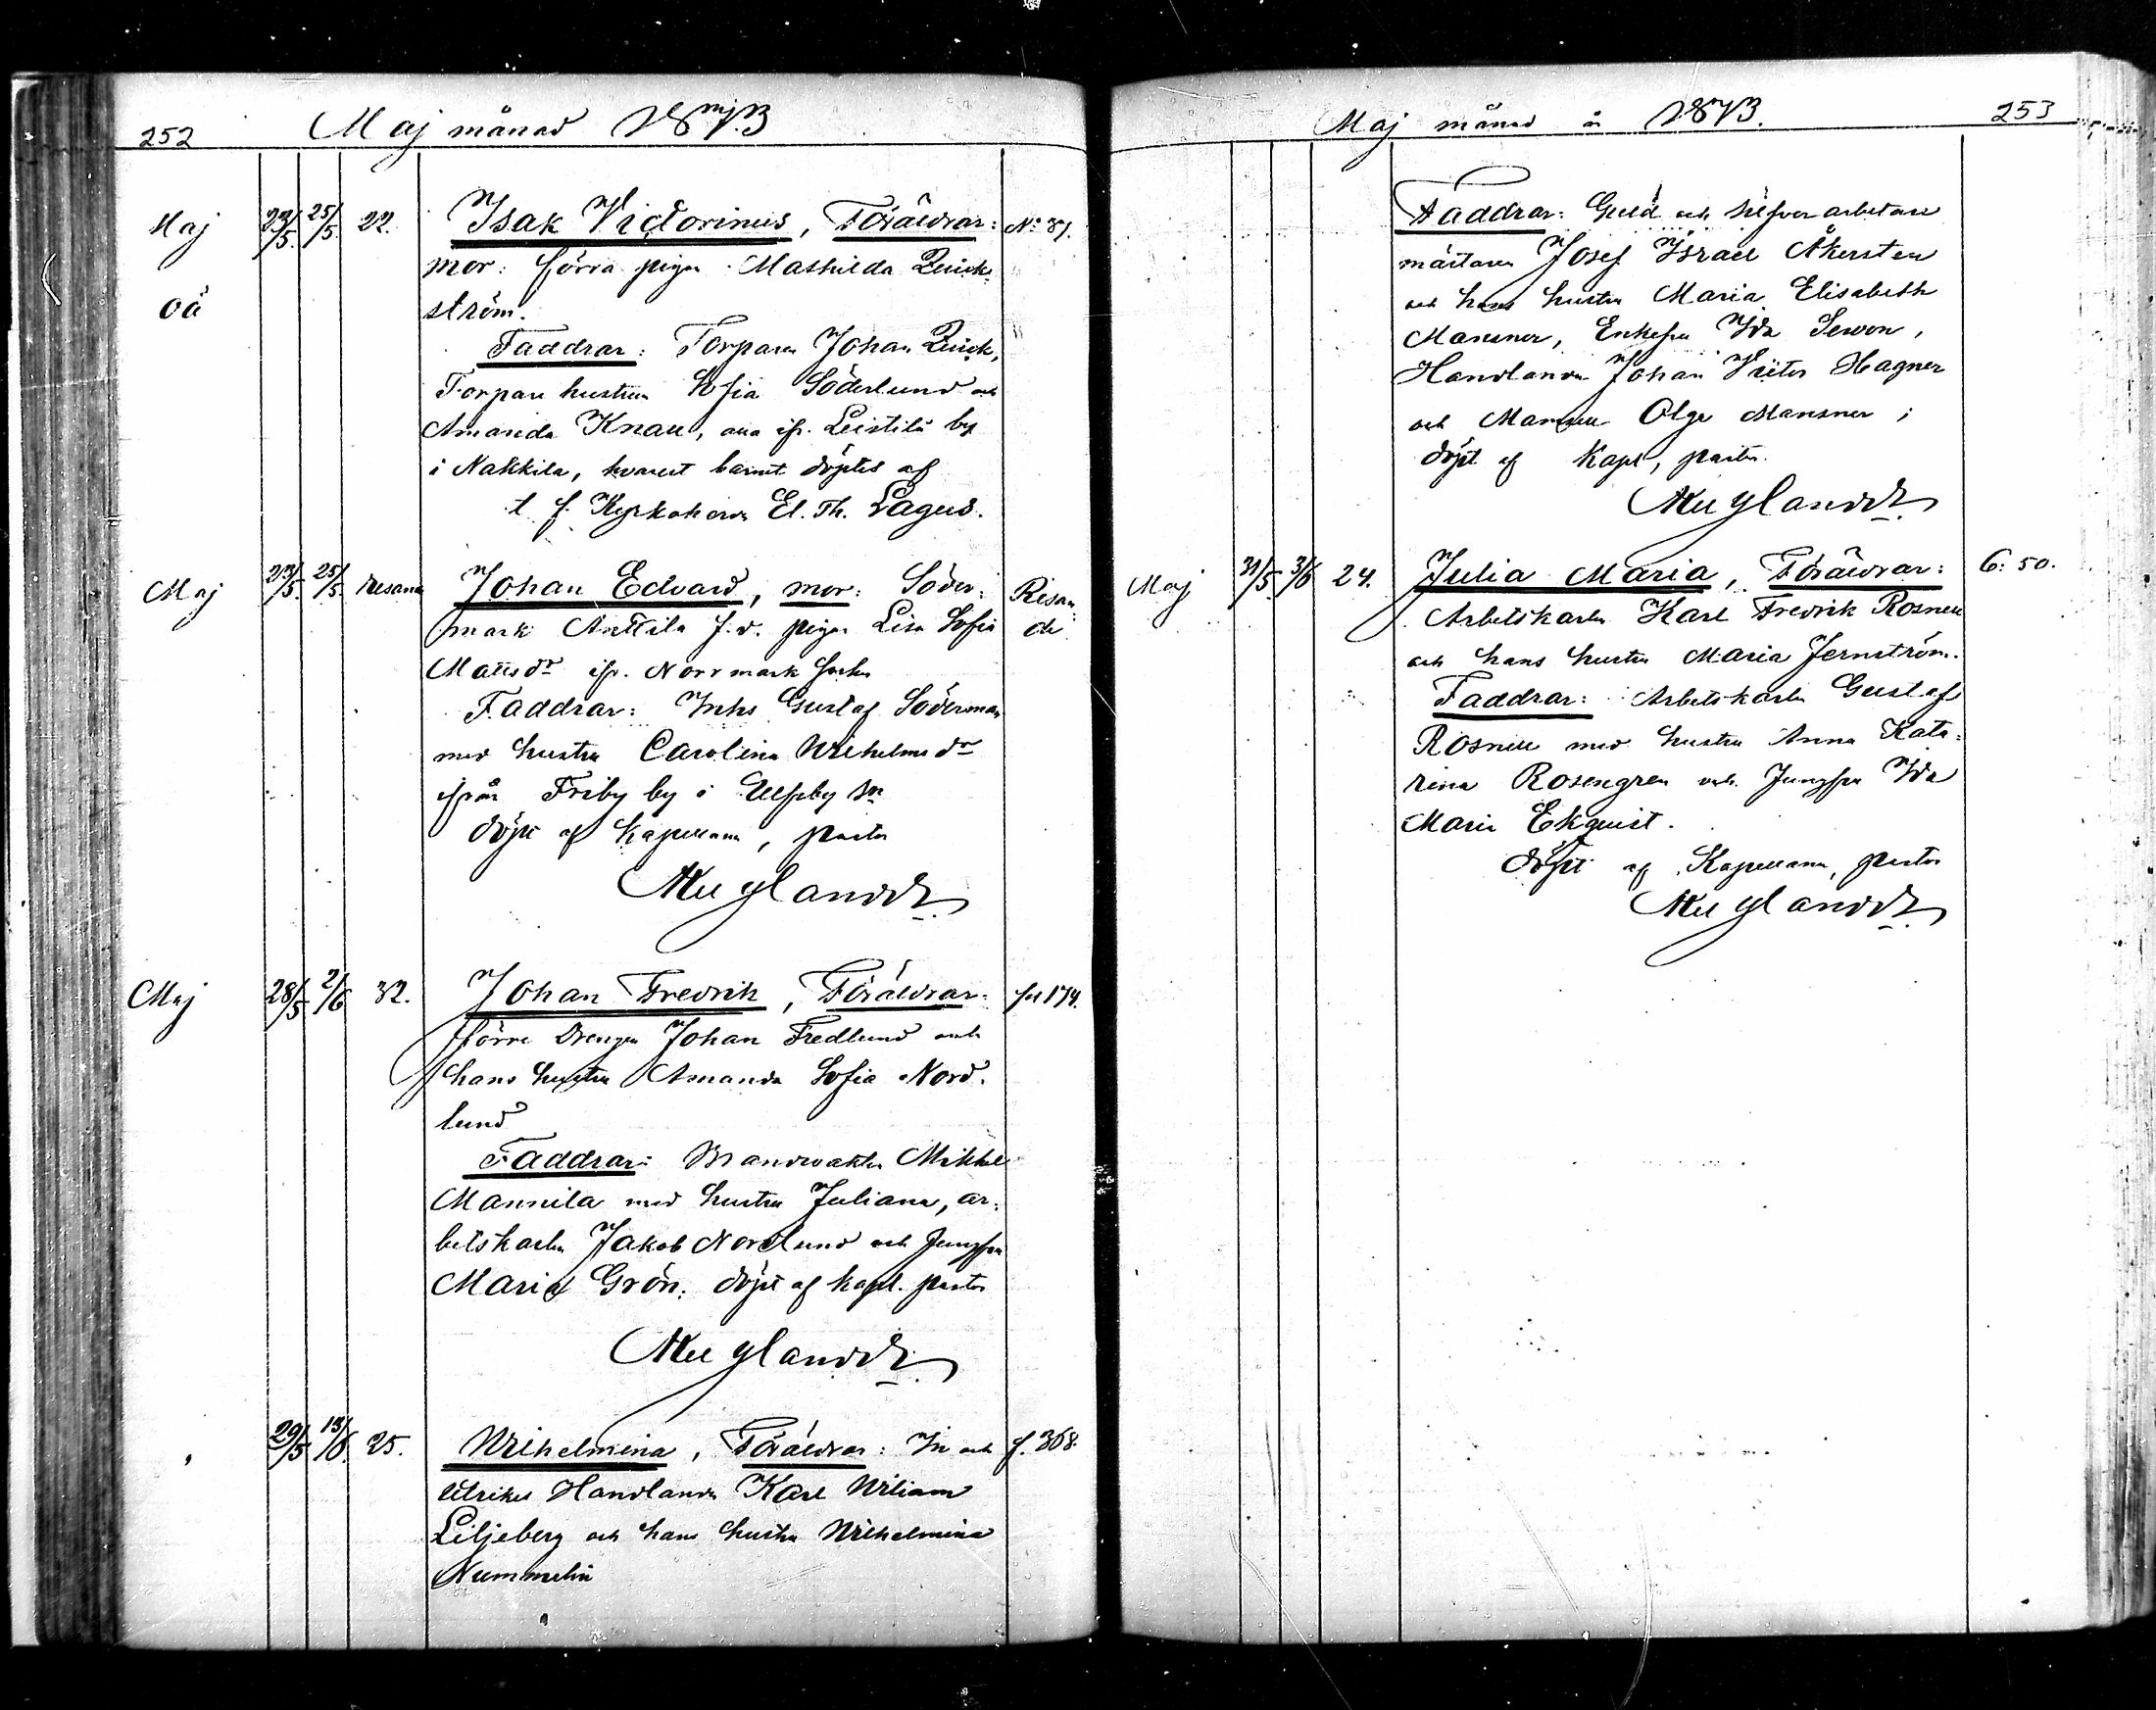 252 Maj månad 1873
Maj 23/5. 25/5. 22. Isak Victorinus, Föräldrar: No 81.
mor: förra pigan Mathilda Quick-
oä ström.
Faddrar: Torparen Johan Quick,
Torpare hustrun Sofia Söderlund och
Amanda Knall, alla ifr. Leistilä by
i Nakkila, hvarest barnet döptes af
t. f. Kyrkoherden El. Th. Lagus.
Maj 23/5. 25/5. resande Johan Edvard, mor: Söder- Resan-
mark Anttila f.d. pigan Lisa Sofia de
Mattsdr ifr. Norrmark socken
Faddrar: Inhs Gustaf Söderman
med hustru Carolina Wilhelmsdr
ifrån Friby by i Ulfsby sn
döpt af Kapellanen, pastor
Maj 28/5 2/6 32. Johan Fredrik, Föräldrar: fol 174.
förre Drengen Johan Fredlund och
hans hustru Amanda Sofia Nord-
lund
Faddrar: Brandvakten Mikkel
Mannila med hustru Juliana, ar-
betskarlen Jakob Nordlund och Jungfru
Maria Grön; döpt af kapl. pastor
29/5 13/6. 25. Wilhelmina, Föräldrar: In och f. 368.
utrikes Handlanden Karl Wiliam
Liljeberg och hans hustru Wilhelmina
Nummelin
Maj månad år 1873. 253
Faddrar: Guld och silfver arbetare
mästaren Josef Israel Åkersten
och hans hustru Maria Elisabeth
Mansner, Enkefru Ida Sewon,
Handlanden Johan Victor Hagner
och Mamsell Olga Mansner;
döpt af Kapl, pastor
Maj 31/5 3/6 24. Julia Maria, Föräldrar: 6: 50.
Arbetskarlen Karl Fredrik Rosnell
och hans hustru Maria Jernström.
Faddrar: Arbetskarlen Gustaf
Rosnell med hustru Anna Kata-
rina Rosengren och Jungfru Ida
Maria Ekquist.
döpt af Kapellanen, pastor